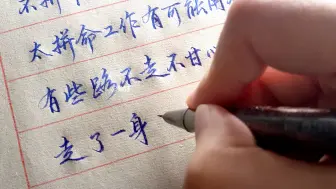 太拼命工作有可能
有些路不走不甘心
走了一身